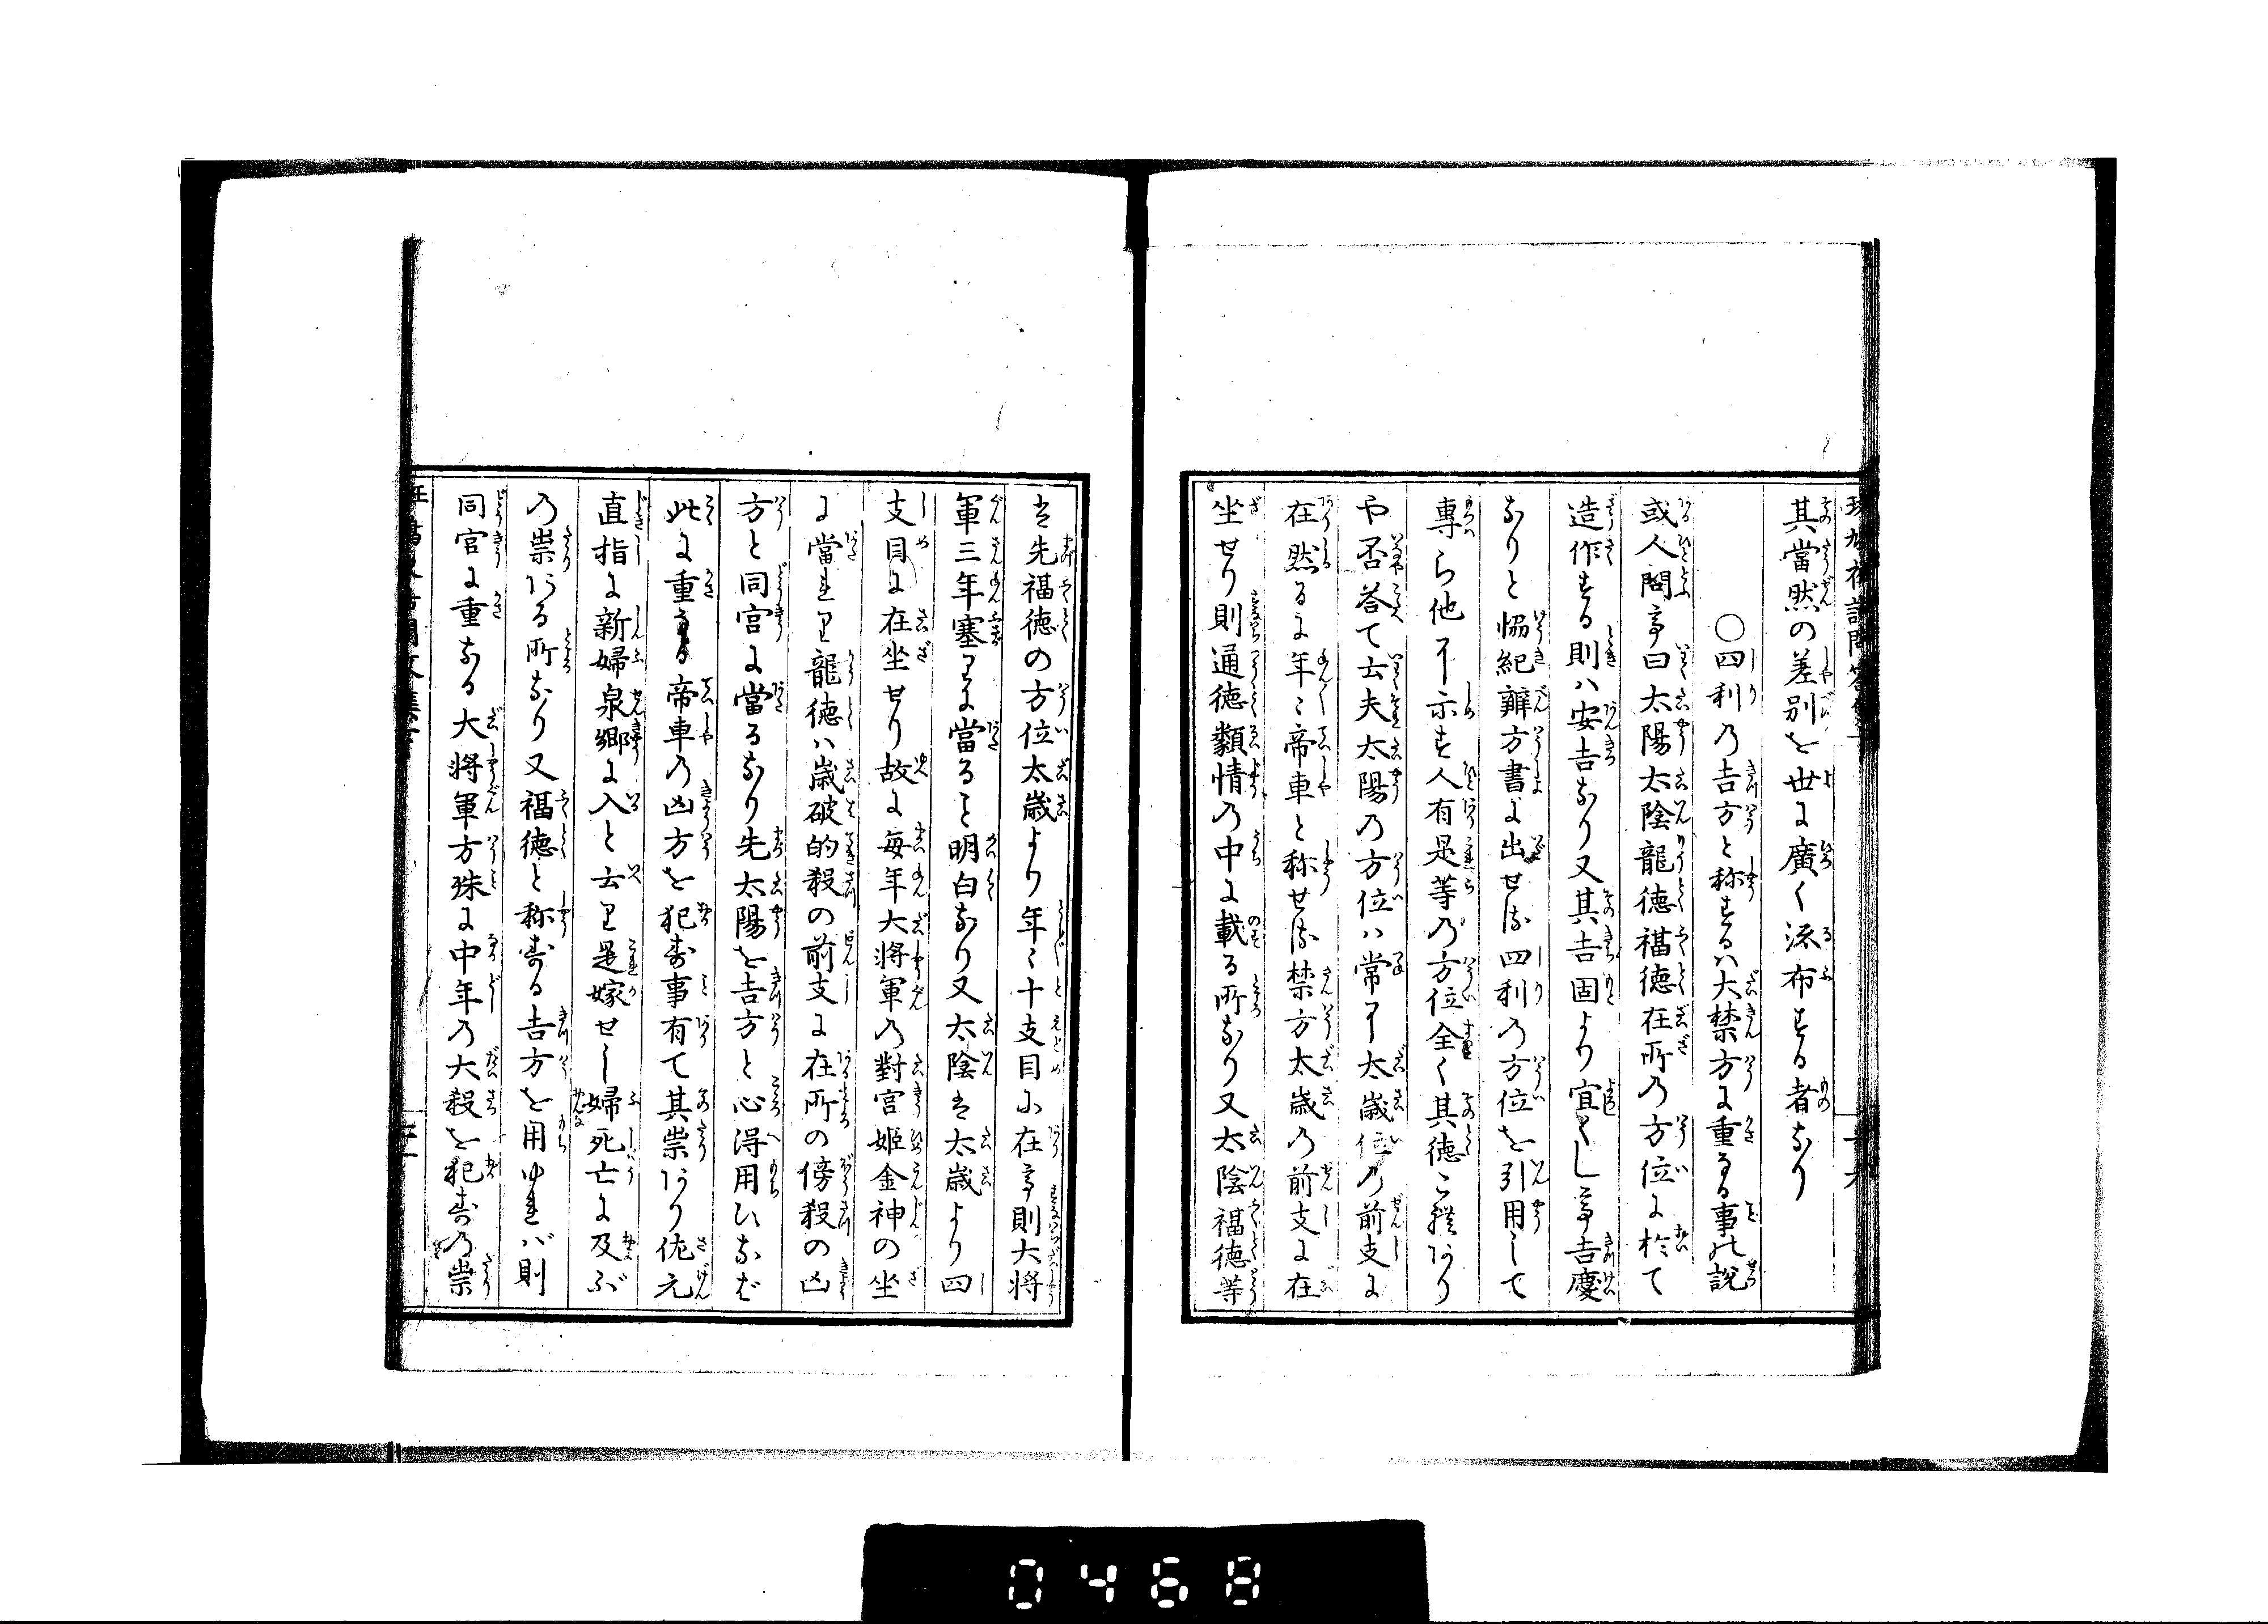 其當然の差別を世に廣く流布する者なり
〇四利の吉方と称するハ大禁方に重る事の説
或人問て曰太陽太陰龍徳福徳在所の方位に於て
造作する則ハ安吉なり又其吉固より宜くして吉慶
なりと恊紀辨方書に出せる四利の方位を引用して
專ら他に示す人有是等の方位全く其徳これあり
や否答て云夫太陽の方位ハ常に太歳位の前支に
在然るに年〻帝車と称せる禁方太歳の前支に在
坐せり則通徳類情の中に載る所なり又太陰福徳等
は先福徳の方位太歳より年〻十支目に在て則大将
軍三年塞りに當ること明白なり又太陰は太歳より四
支目に在坐せり故に毎年大将軍の對宮姫金神の坐
に當れり龍徳ハ歳破的殺の前支に在所の傍殺の凶
方と同宮に當るなり先太陽を吉方と心得用ひなば
此に重なる帝車の凶方を犯す事有て其祟あり佐元
直指に新婦泉郷に入と云り是嫁せし婦死亡に及ぶ
の祟ある所なり又福徳と称する吉方を用ゆれバ則
同宮に重なる大将軍方殊に中年の大殺を犯すの祟
0468